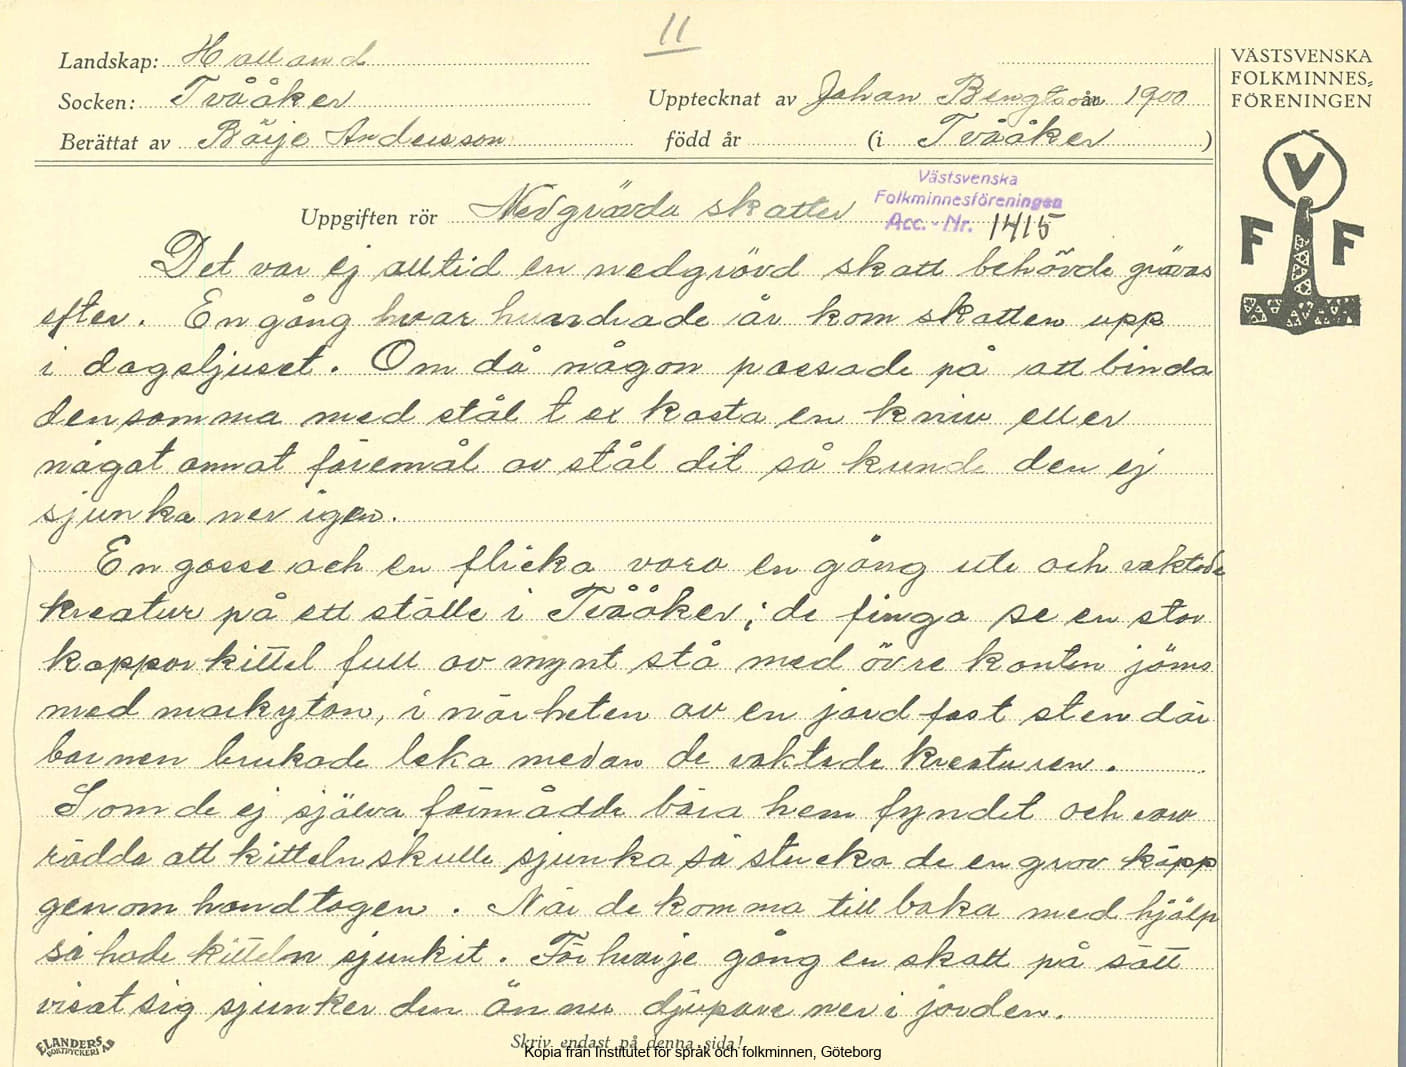 11
Landskap: Halland
Socken: Tvååker
Upptecknat av Johan Bengtson år 1900
Berättat av Börje Andersson
född år (i Tvååker )
VÄSTSVENSKA
FOLKMINNES-
FÖRENINGEN
V
F F
Västsvenska
Folkminnesföreningen
Acc.-Nr. 1415
Uppgiften rör Nedgrävda skatter
Det var ej alltid en nedgrävd skatt behövde grävas
efter. En gång hvar hundrade år kom skatten upp
i dagsljuset. Om då någon passade på att binda
densamma med stål t ex kasta en kniv eller
något annat föremål av stål dit så kunde den ej
sjunka ner igen.
En gosse och en flicka voro en gång ute och vaktade
kreatur på ett ställe i Tvååker; de fingo se en stor
kopparkittel full av mynt stå med övre kanten jäms
med markytan, i närheten av en jordfast sten där
barnen brukade leka medan de vaktade kreaturen.
Som de ej själva förmådde bära hem fyndet och voro
rädda att kitteln skulle sjunka så stucko de en grov käpp
genom handtagen. När de komma tillbaka med hjälp
så hade kitteln sjunkit. För hvarje gång en skatt på sätt
visat sig sjunker den ännu djupare ner i jorden.
ELANDERS
BOKTRYCKERI AB
Skriv endast på denna sida!
Kopia från Institutet för språk och folkminnen, Göteborg